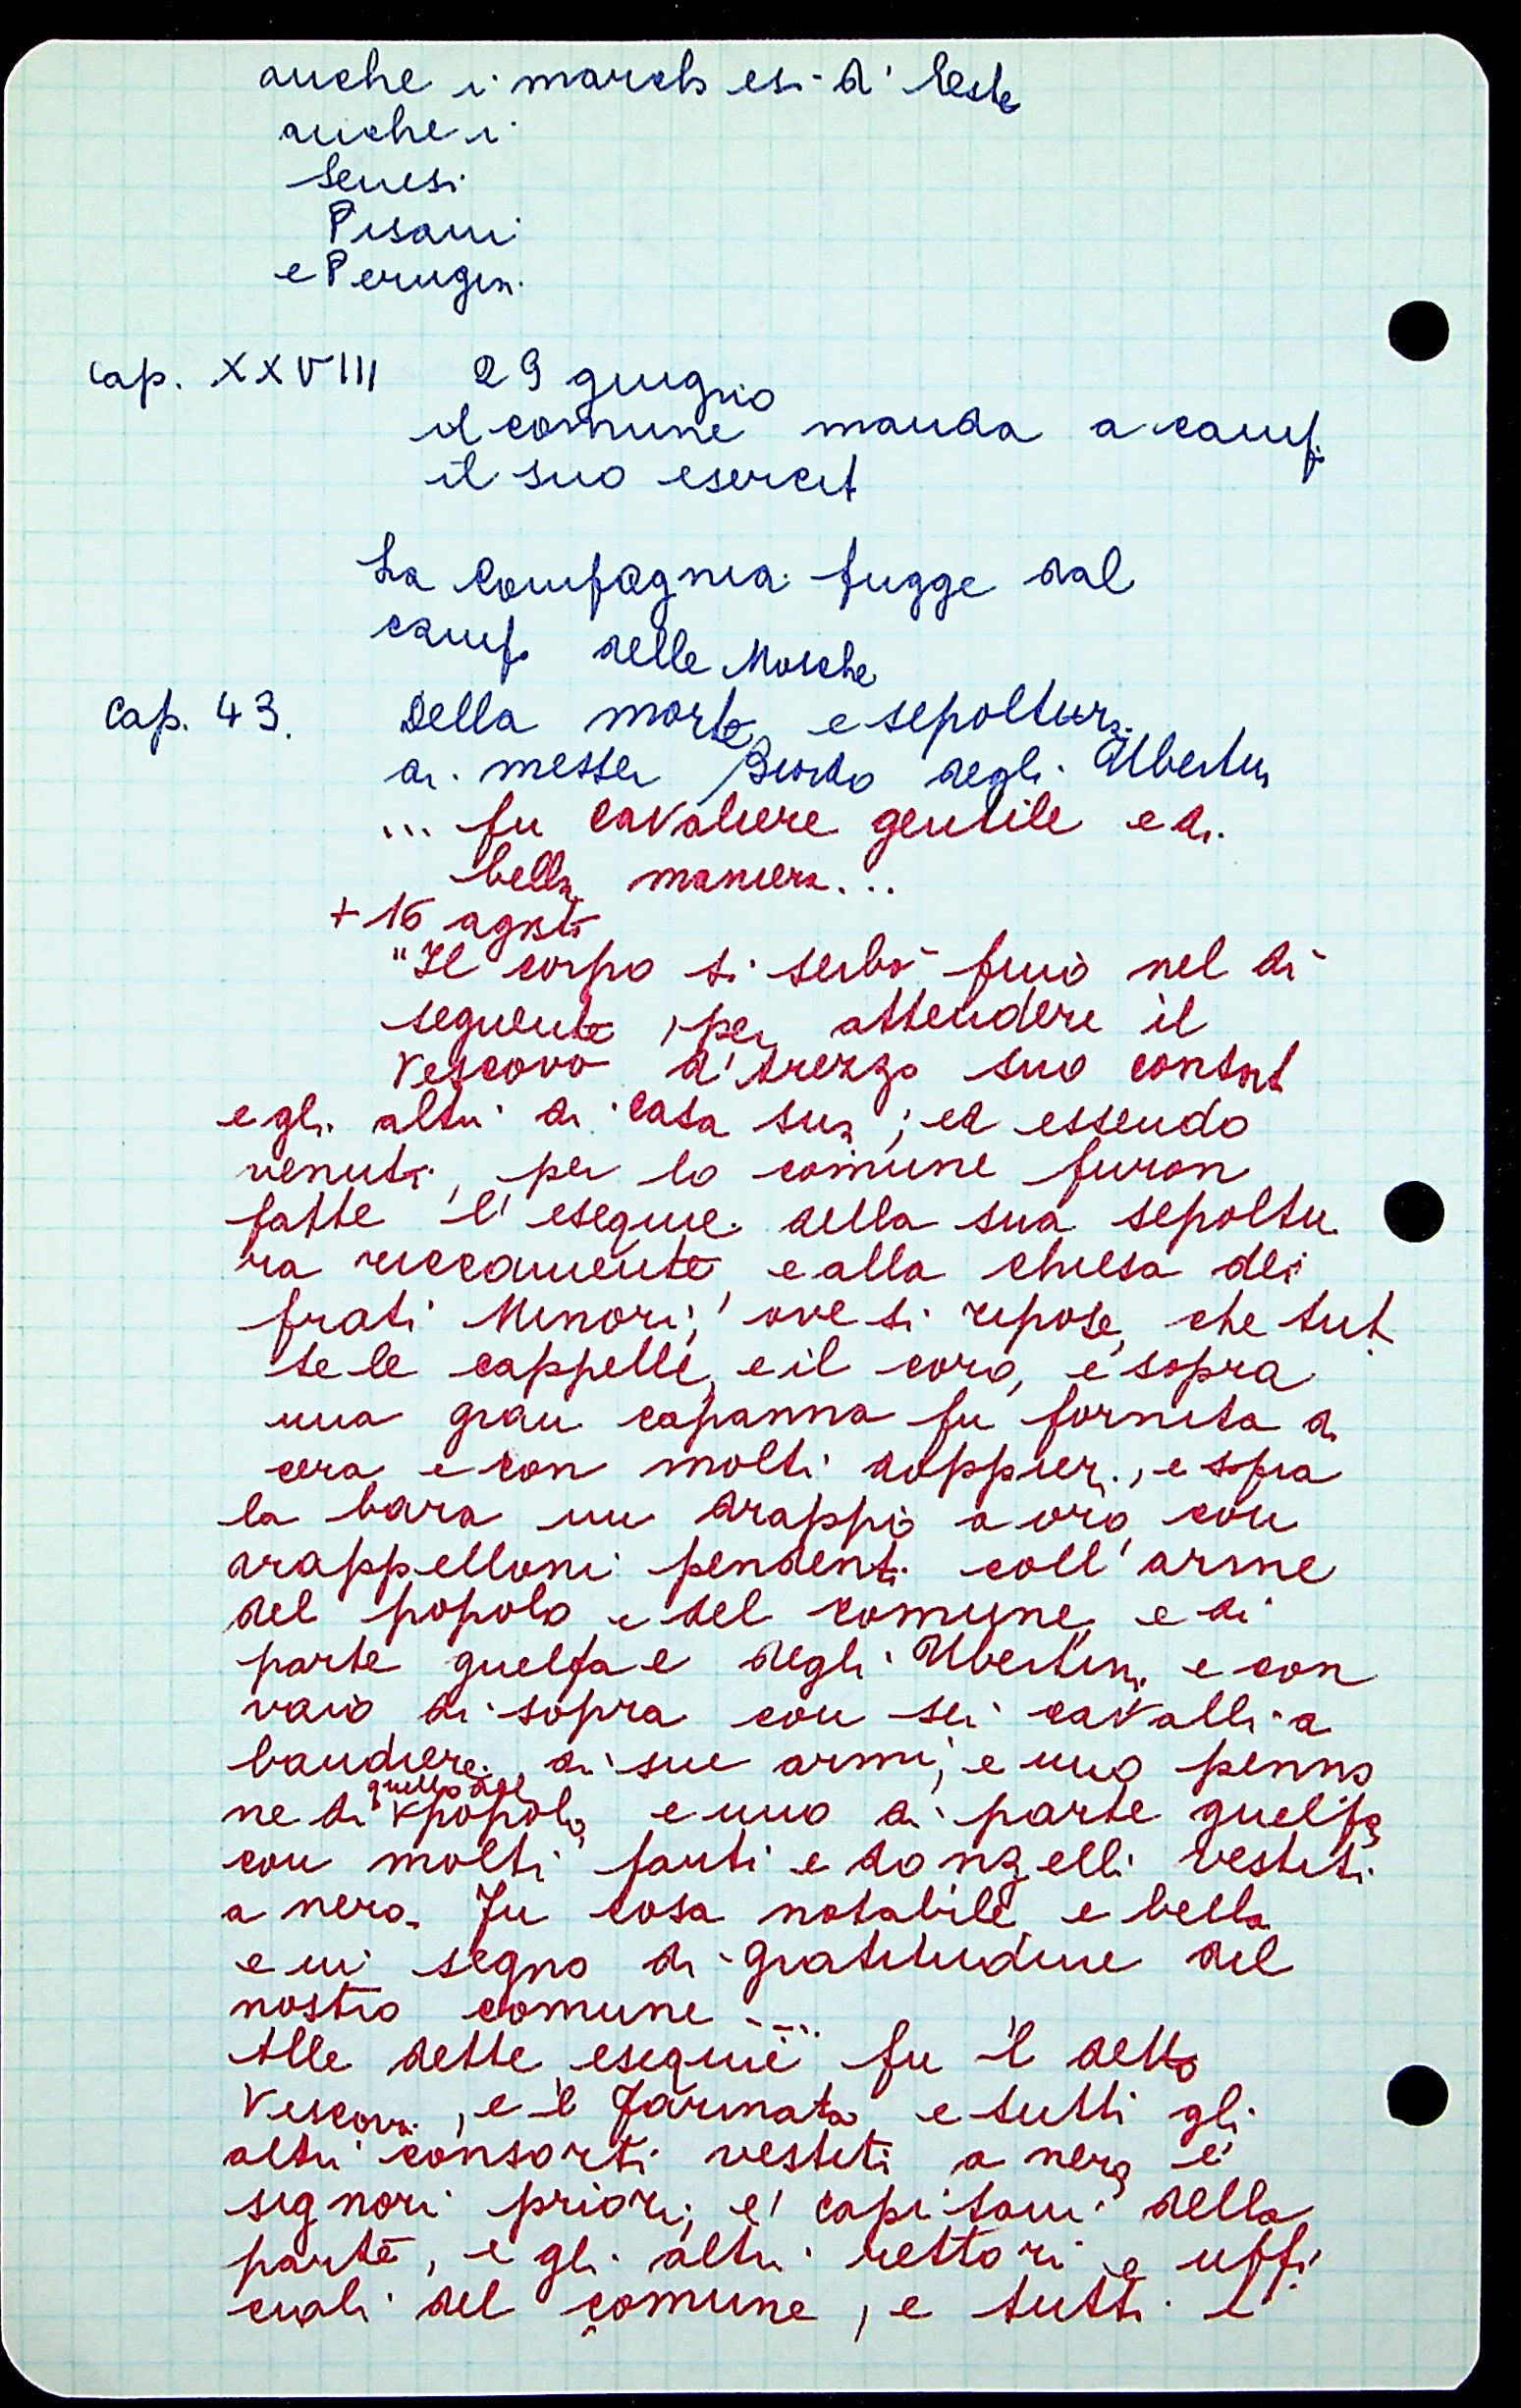 anche i marchesi d'Este
anche i
Senesi
Pisani
e Perugin.
cap. XXVIII 29 giugno
il comune manda a camp.
il suo esercit
La Compagnia fugge dal
camp. delle Mosche
Cap. 43. Della morte e sepoltura
di messer Biordo degli Ubertin
... fu cavaliere gentile e di
bella maniera...
+ 16 agosto
"Il corpo si serbò fino nel dì
seguente, per attendere il
Vescovo d'Arezzo suo consort
e gli altri di casa sua; ed essendo
venuti, per lo comune furon
fatte l'esequie della sua sepoltu
ra riccamente e alla chiesa dei
frati Minori, ove si ripose, che tut
te le cappelle, e il coro, e sopra
una gran capanna fu fornita di
cera e con molti doppieri, e sopra
la bara un drappo a oro con
drappelloni pendenti coll'arme
del popolo e del comune e di
parte guelfa e degli Ubertini e con
vaio di sopra con sei cavalli a
bandiere di sue armi, e uno penno
ne di quello del popolo e uno di parte guelfa
con molti fanti e donzelli vestiti
a nero. Fu cosa notabile e bella
e in segno di gratitudine del
nostro comune ....
Alle dette esequie fu il detto
Vescovo, e il Farinata e tutti gli
altri consorti vestiti a nero e'
signori priori, e' capitani della
parte, e gli altri rettori e uffi
ciali del comune, e tutti e'